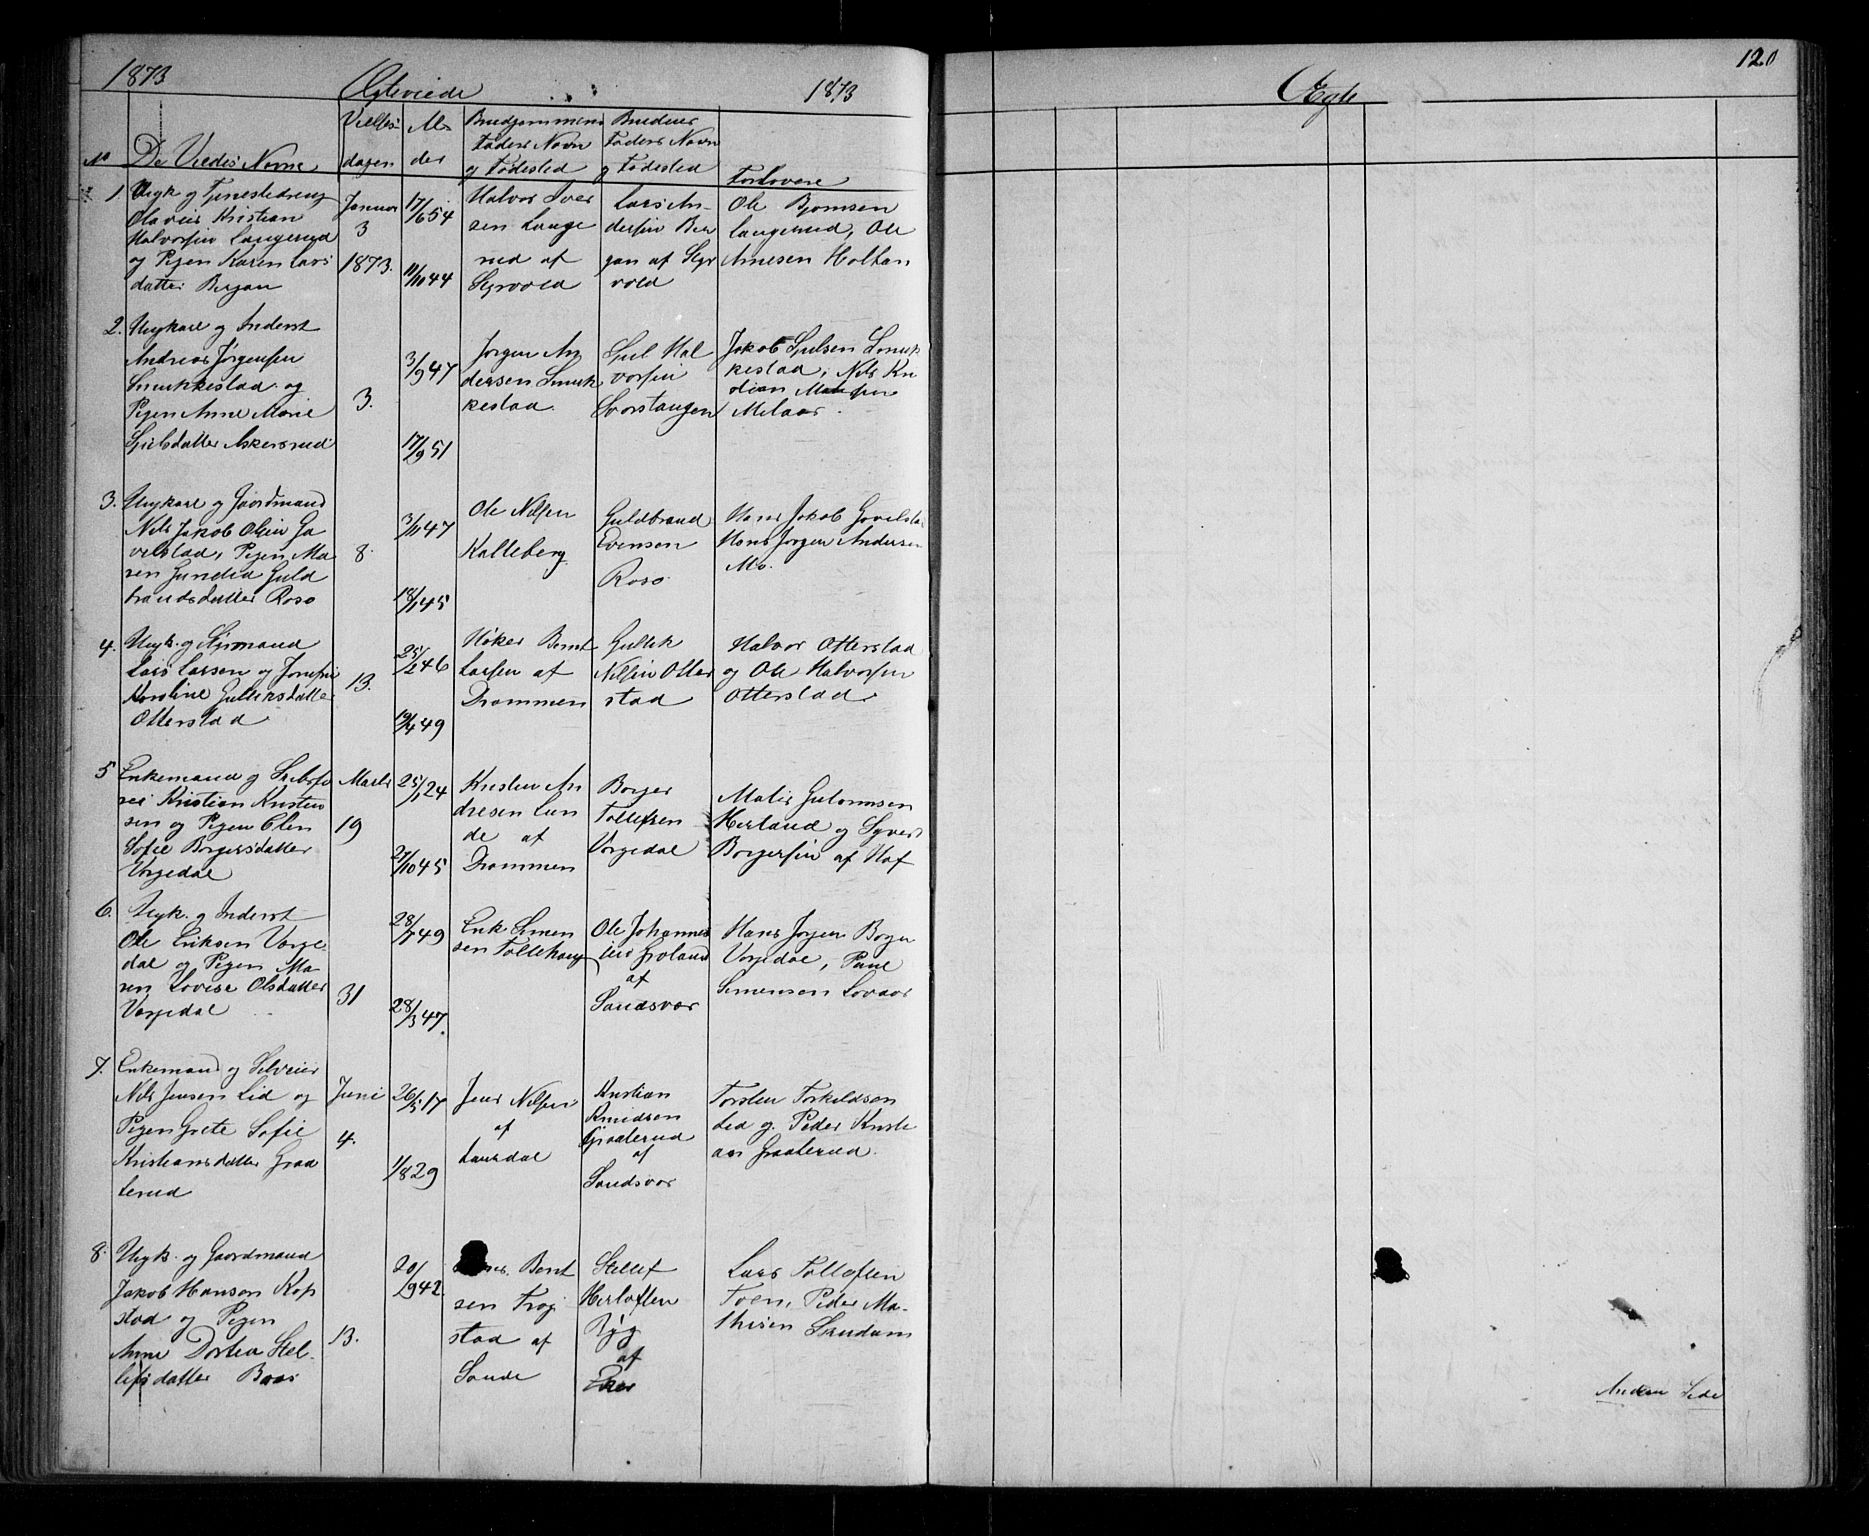 1873
Ægteviede
1873
No
De Viedes Navne
Vielses
dagen
Al
der
Brudgommens
Faders Navn
og Fødested
Brudens
Faders Navn
og Fødested
Forlovere
1.
Ungk og Tjenestedreng
Olaves Kristian
Halvorsen Langerud
og Pigen Karen Lars
datter Bergan
Januar
3
1873.
17/6 54
11/10 44
Halvor Iver
sen Lange
rud af
Sigvold
Lars An-
dersen Ber
gan af Sig
vold
Ole Bjornsen
Langerud, Ole
Arnesen Holtan
2.
Ungkarl og Inderst
Andreas Jørgensen
Smukkestad og
Pigen Anne Marie
Gjulsdatter Askersrud
3.
3/9 47
17/9 51
Jørgen An
dersen Smuk
kestad
Gjul Hal
vorsen
Svorstangen
Jakob Gjulsen Smuk
kestad, Nils Kri
stian
Melaas.
3.
Ungkarl og Gaardmand
Nils Jakob Olsen Ga
velstad, Pigen Ma
ren Gundia Guld
brandsdatter Roso
8.
3/11 47
18/1 45
Ole Nilsen
Kalleberg
Guldbrand
Evensen
Roso
Hans Jakob Gavelstad
Hans Jørgen Andersen
Mo.
4.
Ungk. og Styrmand
Lars Larsen og Josefine
Karoline Gulliksdatter
Otterstad
13.
25/2 46
19/4 49
Høker Bernt
Larsen af
Drammen
Gullik
Nilsen Otter
stad
Halvor Otterstad
og Ole Halvorsen
Otterstad
5
Enkemand og
Kristian Kristen
sen og Pigen Elen
Sofie Borgersdatter
Vorgedal
Marts
19
25/1 24
27/10 45
Kristen An
dresen Lun
de af
Drammen
Borger
Tollefsen
Vorgedal
Matis Gulormsen
Herland og Syver
Borgersen af Haf
6.
Ungk. og Inderst
Ole Eriksen Vorge
dal og Pigen Ma
ren Lovise Olsdatter
Vorgedal
31
28/7 49
28/3 47.
Erik Simen
sen Tollehaug
Ole Johannes
sen Groland
af
Sandsvær
Hans Jørgen Borger
Vorgedal, Paul
Simensen Lovaas
7.
Enkemand og Selveier
Nils Jensen Lid og
Pigen Grete Sofie
Kristiansdatter Graa
terud
Juni
4.
26/5 17
1/8 29
Jens Nilsen
af
Laurdal
Kristian
Knudsen
Graaterud
af
Sandsvær
Torsten Torkildsen
Lid og Peder Kristi
an Graaterud.
8.
Ungk. og Gaardmand
Jakob Hansen Kop
stad og Pigen
Anne Dortea Stel
lefsdatter Baas
13.
20/9 42.
Bernt
sen Trog
stad af
Sande
Stellef
Herlofsen
Ryg
af
Eker
Lars Tollefsen
Toen, Peder Ma-
thisen Skudam
Ægte
120
Andreas Lide